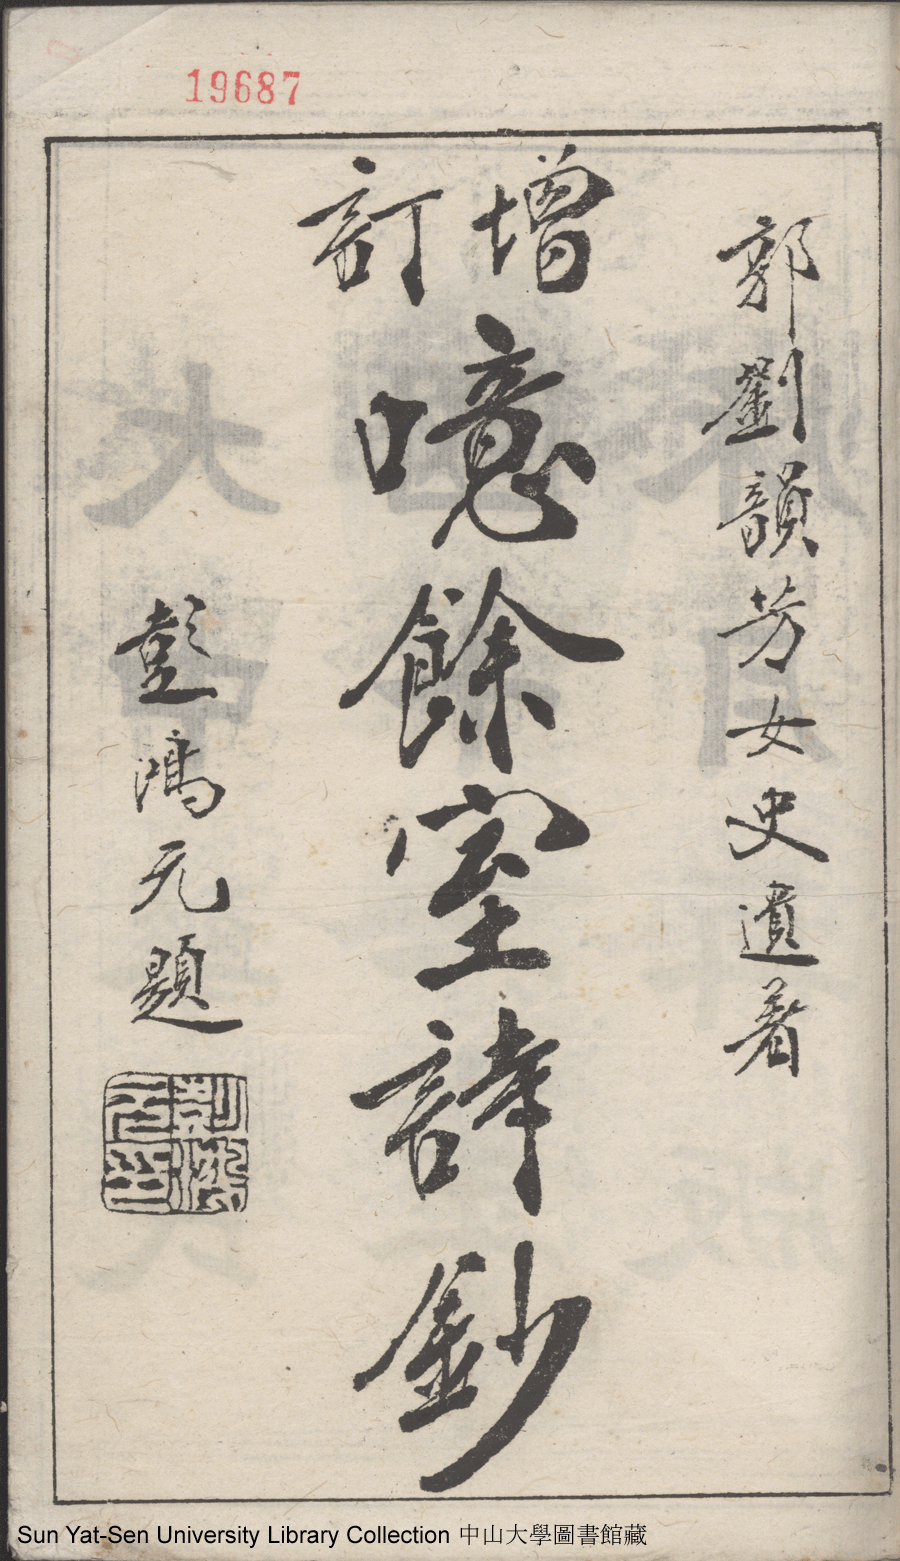 19687
郭劉韻芳女史遺著
增訂
噫餘室詩鈔
彭鴻元題
Sun Yat-Sen University Library Collection 中山大學圖書館藏